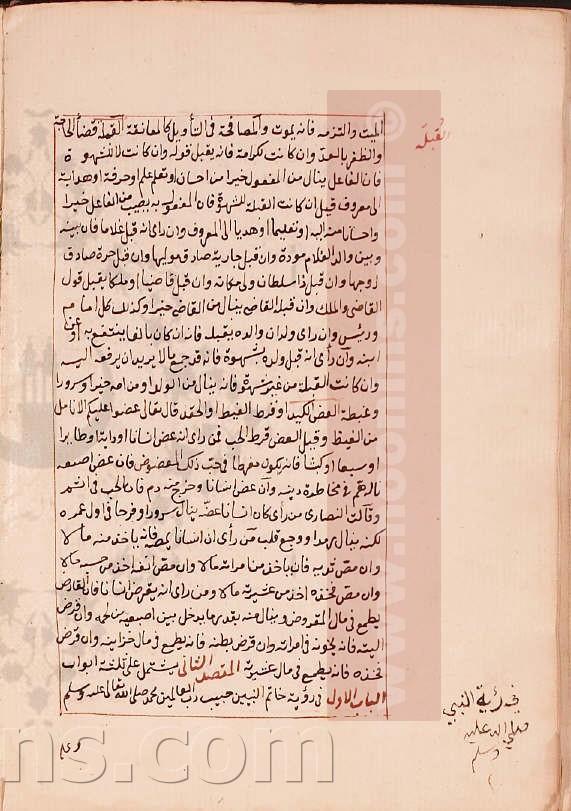 القبلة
الميت والتزمه فانه يموت والمصافحة في التأويل كالمعانقة القبلة قضاء الحاجة
والظفر بالعدو وان كانت كرامة فانه يقبل قوله وان كانت لا للشهوة
فان الفاعل ينال من المفعول خيرا من احسان او تعلم علم او حرفة او هداية
الى معروف قيل ان كانت القبلة لشهوة فان المفعول به يصيب من الفاعل خيرا
واحسانا منه اليه او تعليما او هديا الى المعروف وان راى انه قبل غلاما فان بينه
وبين والد الغلام مودة وان قبل جارية صادق موليها وان قبل حرة صادق
زوجها وان قبل ذا سلطان ولى مكانه وان قبل قاضيا او ملكا يقبل قول
القاضي والملك وان قبله القاضي ينال من القاضي خيرا وكذلك كل امام
ورئيس وان راى ولدان والده يقبله فانه ان كان بالغا ينتفع به او عن
ابنه وان راى انه قبل ولده بشهوة فانه قد جمع مالا يريد ان يرفعه اليه
وان كانت القبلة من غير شهوة فانه ينال من الولد او من امه خيرا وسرورا
وغبطة العض الكيد او فرط الغيظ او الحقد قال تعالى عضوا عليكم الانامل
من الغيظ وقيل العض فرط الحب فمن راى انه عض انسانا او دابة او طايرا
او سبعا او كبشا فانه يكون مفرطا في حب ذلك المعضوض فان عض اصبعه
ناله هم في مخاطرة دينه وان عض انسانا وخرج منه دم فان الحب في اثم
وقالت النصارى من راى كان انسانا عضه ينال سرورا وفرحا في اول عمره
لكنه ينال رمدا ووجع قلب من راى ان انسانا يمصه فانه ياخذ منه مالا
وان مص ثديه فان ياخذ من امراته مالا وان مص انفه اخذ من مالا
وان مص فخذه اخذ من عشيرته مالا ومن راى انه يقرض انسانا فان القارض
يطمع في مال المقروض وينال منه بقدر ما يدخل بين اصبعيه من لحمه وان قرض
اليته فانه يخونه في امراته وان قرض بطنه فانه يطمع في مال خزاينه وان قرض
فخذه فانه يطمع في مال عشيرته المقصد الثاني يشتمل على ثلثة ابواب
الباب الاول في رؤية خاتم النبيين حبيب رب العالمين محمد صلى الله تعالى عليه وسلم
في رؤية النبي
صلى الله عليه
وسلم
www.noonhs.com
ns.com